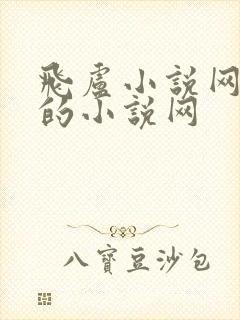 飛盧小説网
的小説网
八寶豆沙包